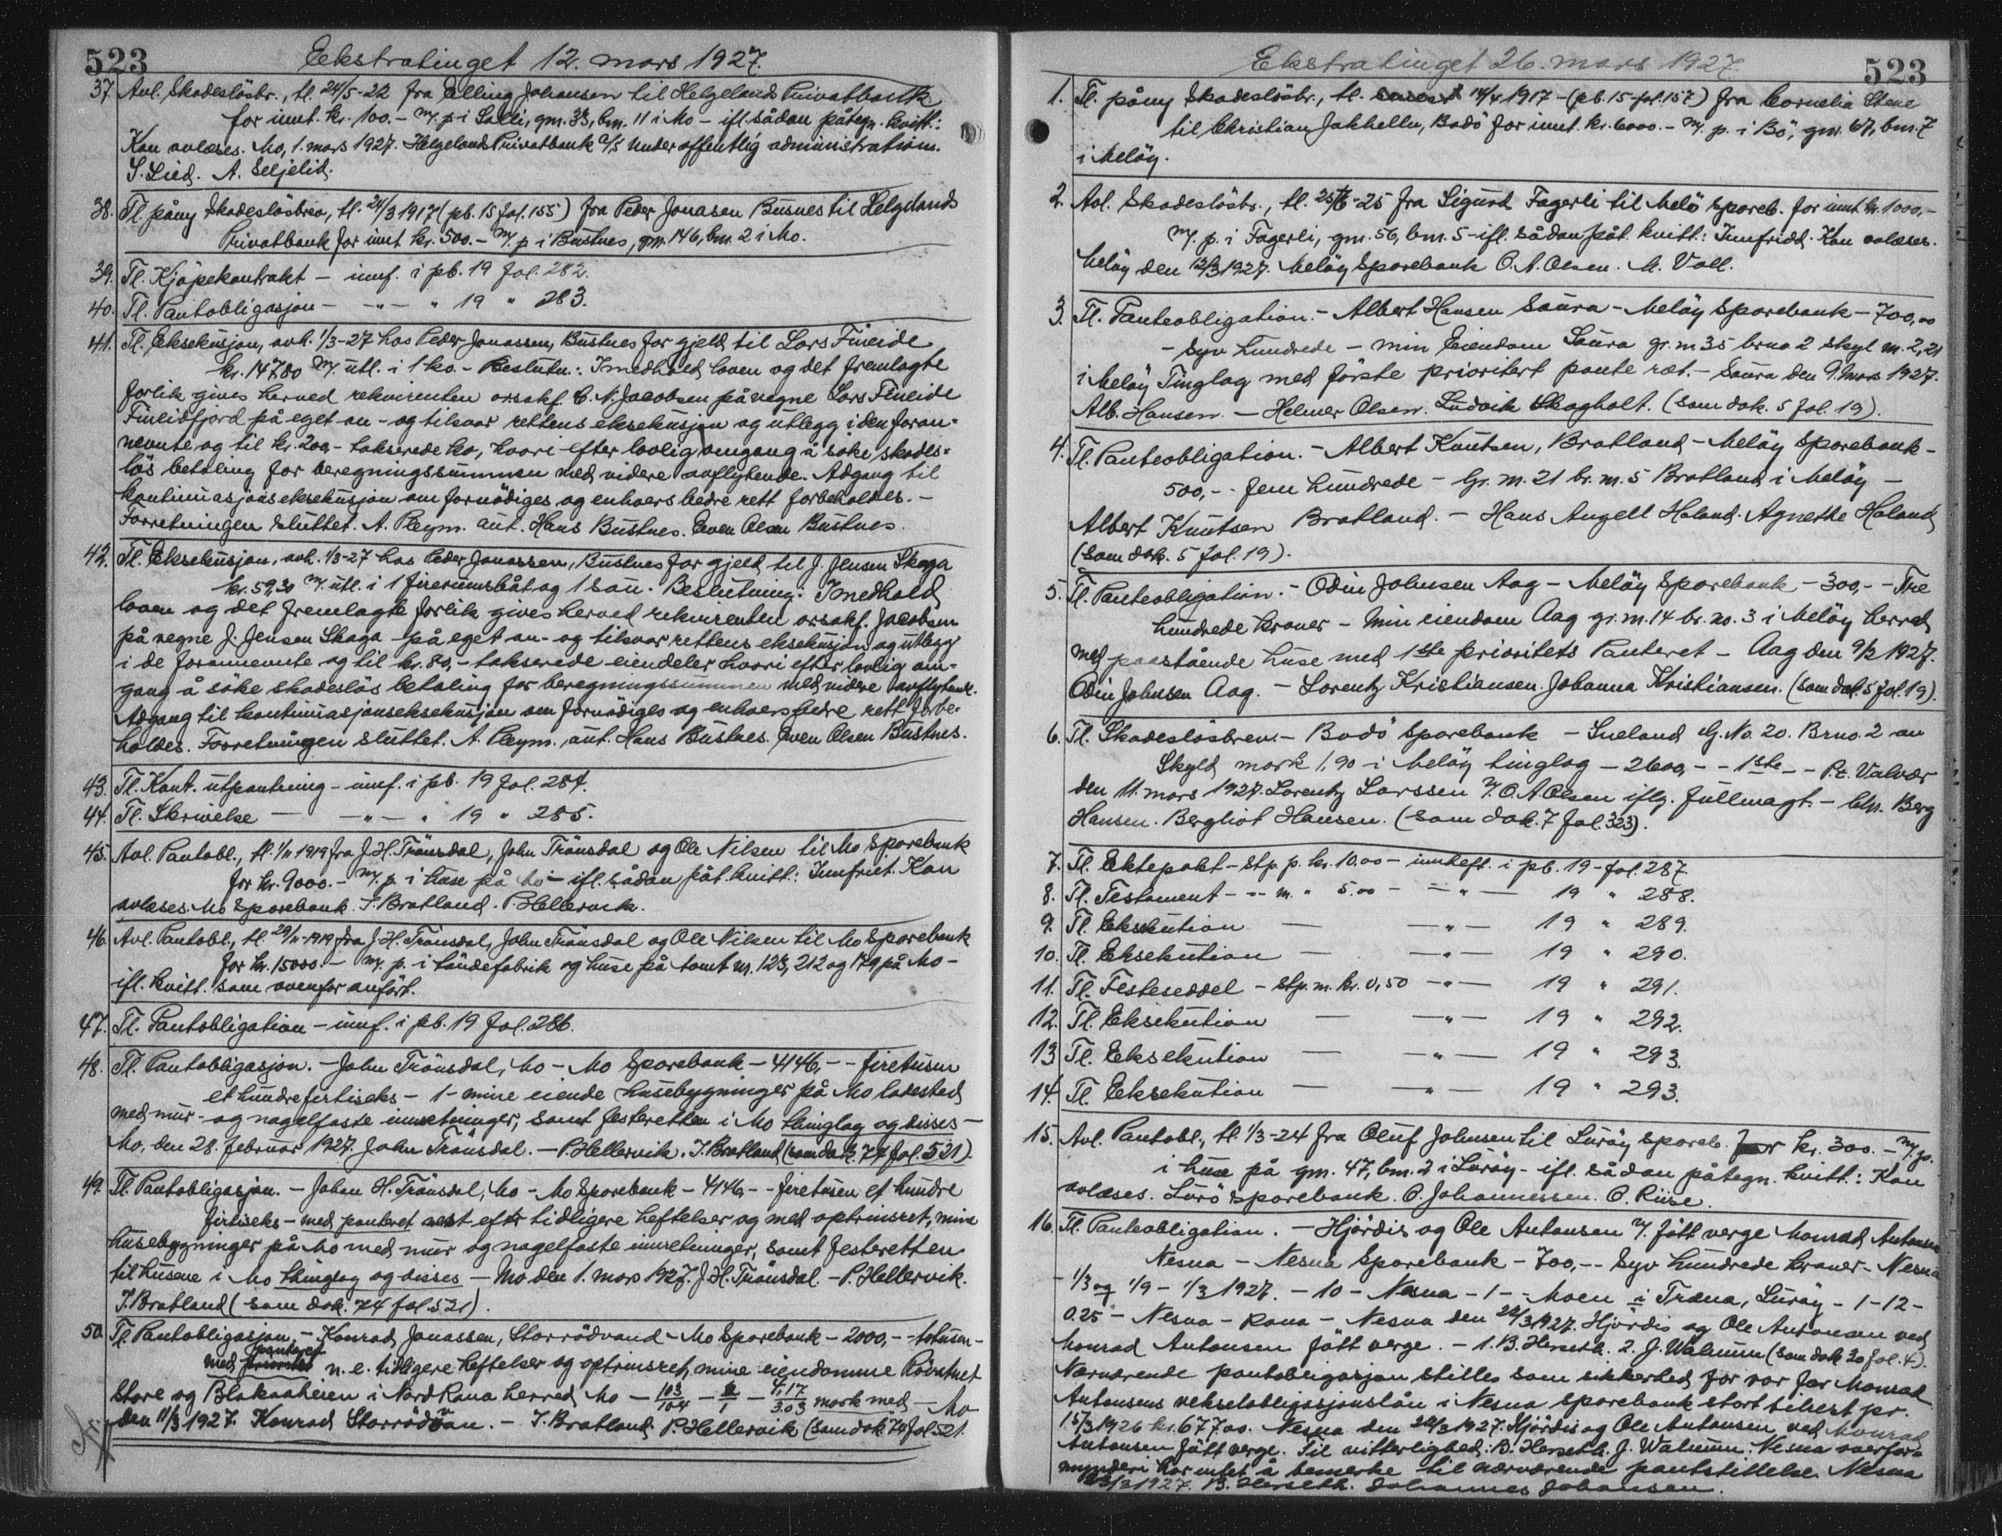 523 Ekstratinget 12. mars 1927.
37. Avl. Skadesløsbr., tl. 24/5-22 fra Elling Johansen til Helgelands Privatbank
for innt. kr. 100.- m/ p i Selli, gnr. 33, bnr. 11 i Mo - ifl. sådan påtegn. kvitt.:
Kan avlæses. Mo, 1. mars 1927. Helgelands Privatbank a/s under offentlig administration.
S. Lied. A. Seljelid.
38. Tl. påny Skadesløsbrev, tl. 24/3 1917 (pb. 15 fol. 155) fra Peder Jonasen Busnes til Helgelands
Privatbank for innt. kr. 500.- m/ p i Bustnes, gnr. 146, bnr. 2 i Mo.
39. Tl. Kjøpekontrakt - innf. i pb. 19 fol. 282.
40. Tl. Pantobligasjon - -"- " 19 " 283.
41. Tl. Eksekusjon, avh. 1/3-27 hos Peder Jonassen, Bustnes for gjeld til Lars Fineide
kr. 147.80 m/ utl. i 1 ko. - Beslutn.: I medhold loven og det fremlagte
forlik gives herved rekvirenten orsakf. C. N. Jacobsen på vegne Lars Fineide
Finneidfjord på eget an- og tilsvar rettens eksekusjon og utlegg i den foran-
nevnte og til kr. 200,- takserede ko, hvori efter lovlig omgang å søke skades-
løs betaling for beregningssummen med videre avflytende. Adgang til
kontinuasjonseksekusjon om fornødiges og enhvers bedre rett forbeholdes. -
Forretningen sluttet. A. Pleym. aut. Hans Bustnes. Even Olsen Bustnes.
42. Tl. Eksekusjon, avh. 1/3-27 hos Peder Jonassen, Bustnes for gjeld til J. Jensen Skaga
kr. 59,30 m/ utl. i 1 firerumsbåt og 1 sau. Beslutning: I medhold
loven og det fremlagte forlik gives herved rekvirenten orsakf. Jacobsen
på vegne J. Jensen Skaga - på eget an- og tilsvar rettens eksekusjon og utlegg
i de forannevnte og til kr. 80,- takserede eiendeler hvori efter lovlig om-
gang å søke skadesløs betaling for beregningssummen med videre avflytende.
Adgang til kontinuasjonseksekusjon om fornødiges og enhvers bedre rett forbe-
holdes. Forretningen sluttet. A. Pleym, aut. Hans Bustnes. Even Olsen Bustnes.
43. Tl. Kont. utpantning - innf. i pb. 19 fol. 284.
44. Tl. Skrivelse - -"- " 19 " 285.
45. Avl. Pantobl., tl. 1/11 1919 fra J. H. Trånsdal, John Trånsdal og Ole Nilsen til Mo Sparebank
for kr. 9000.- m/ p. i huse på Mo - ifl. sådan påt. kvitt.: Innfriet. Kan
avlæses. Mo Sparebank. I. Bratland. P. Hellervik.
46. Avl. Pantobl., tl. 29/11-1919 fra J. H. Trånsdal, John Trånsdal og Ole Nilsen til Mo Sparebank
for kr. 15000.- m/ p. i tøndefabrik og huse på tomt nr. 123, 212 og 179 på Mo -
ifl. kvitt. som ovenfor anført.
47. Tl. Pantobligation - innf. i pb. 19 fol. 286.
48. Tl. Pantobligasjon. - John Trånsdal, Mo - Mo Sparebank - 4146,- - firetusen
et hundre førtiseks - 1 - mine eiende husebygninger på Mo ladested
med mur- og nagelfaste innretninger, samt festeretten i Mo thinglag og disses -
Mo, den 28. februar 1927. John Trånsdal. - P. Hellervik. I. Bratland (som dok. 74 fol. 521).
49. Tl. Pantobligasjon. - Johan H. Trånsdal, Mo - Mo Sparebank - 4146,- - firetusen et hundre
førtiseks - med panteret næst efter tidligere heftelser og med optrinsret, mine
husebygninger på Mo med mur og nagelfaste innretninger, samt festeretten
til husene i Mo thinglag og disses - Mo den 1. mars 1927. J. H. Trånsdal. - P. Hellervik.
I. Bratland (som dok. 74 fol 521).
50. Tl. Pantobligasjon, - Konrad Jonassen, Storrødvand - Mo Sparebank - 2000,- - totusen -
med panteret n. e. tidligere heftelser og optrinsret, mine eiendomme
Store og Blakaaheien i Nord Rana herred Mo - 103/104 - 2/1 - 4,17/3.03 mark med - Mo
den 11/3 1927. Konrad Storrødvan. - I. Bratland. P. Hellervik (som dok 74 fol. 521.
Ekstratinget 26. mars 1927. 523
1. Tl. påny Skadesløsbr., tl. 14/4 1917 - (pb. 15 fol. 157) fra Cornelia Stene
til Christian Jakhelln, Bodø for innt. kr. 6000.- m/ p. i Bø, gnr. 67, bnr. 7
i Meløy.
2. Avl. Skadesløsbr., tl. 25/6-25 fra Sigurd Fagerli til Melø Spareb. for innt kr. 1000,-
m/ p. i Fagerli, gnr. 56, bnr. 5 - ifl. sådan påt. kvitt.: Innfridd. Kan avlæses.
Meløy den 12/3 1927. Meløy Sparebank O. A. Olsen. M. Voll.
3. Tl. Panteobligation. - Albert Hansen Saura - Meløy Sparebank - 700,00
- Syv hundrede - min Eiendom Saura gr. nr 35 brno 2 skyl m. 2,21
i Meløy Tinglag med første prioritert pante ret. - Saura den 9. Mars 1927.
Alb. Hansen. - Helmer Olsen. Ludvik Skogholt. (som dok. 5 fol. 19).
4. Tl. Panteobligation. - Albert Knutsen, Bratland - Meløy Sparebank -
500,- - fem hundrede - Gr. nr. 21 br. nr. 5 Bratland i Meløy -
Albert Knutsen Bratland. - Hans Angell Haland. Agnethe Haland
(som dok. 5 fol. 19).
5. Tl. Panteobligation. - Odin Johnsen Aag - Meløy Sparebank - 300,- - Tre
hundrede kroner - Min eiendom Aag gr. nr. 14 br. no. 3 i Meløy herred
med paastående huse med 1ste prioritets Panteret - Aag den 9/2 1927.
Odin Johnsen Aag. - Lorentz Kristiansen. Johanna Kristiansen. (som dok. 5 fol. 19).
6. Tl. Skadesløsbrev. - Bodø Sparebank - Sneland G. No. 20. Brno. 2 av
Skyld mark 1,90 - i Meløy tinglag - 2600,- - 1ste - - P.t. Valvær
den 11. mars 1927. Lorentz Larssen m/ O. A Olsen iflg. fullmagt. - Chr. Berg
Hansen. Bergliot Hansen. (som dok. 7 fol. 323).
7. Tl. Ektepakt - stp. p. kr. 10.00 - innheft. i pb. 19 - fol. 287
8. Tl. Testament - -"- m. " 5.00 - -"- 19 " 288.
9. Tl. Eksekution - -"- 19 " 289.
10. Tl. Eksekution - -"- 19 " 290.
11. Tl. Festeseddel - stp. m. kr. 0,50 -"- 19 " 291.
12. Tl. Eksekution - -"- 19 " 292.
13 Tl. Eksekution - -"- 19 " 293.
14. Tl. Eksekution - -"- 19 " 293.
15. Avl. Pantobl., tl. 1/3-24 fra Oluf Johnsen til Lurøy Spareb. for kr. 300.- m/ p.
i huse på gnr. 47, bnr. 2 i Lurøy - ifl. sådan påtegn. kvitt.: Kan
avlæses. Lurø Sparebank. O. Johannessen. O. Riise.
16. Tl. Panteobligation. - Hjørdis og Ole Antonsen m/ fått verge Monrad Antonsen
Nesna - Nesna Sparebank - 700,- - Syv hundrede kroner - Nesna
- 1/3 og 1/9 - 1/3 1927. - 10 - Nesna - 1 - - Moen i Træna, Lurøy - 1 - 12 -
0.25 - Nesna - Rana - Nesna den 22/3 1927. Hjørdis og Ole Antonsen ved
Monrad Antonsen fått verge. - 1. B. Herseth. 2. J. Walnum (som dok 30 fol. 4).
Nærværende pantobligasjon stilles som sikkerhed for vor far Monrad
Antonsens vekselobligasjonslån i Nesna Sparebank stort tilrest pr.
15/3 1926 kr. 677.00. Nesna den 22/3 1927. Hjørdis og Ole Antonsen ved Monrad
Antonsen fått verge. Til vitterlighed: B. Herseth. J. Walnum. Nesna overfor-
mynderi har intet å bemerke til nærværende pantstillelse. Nesna
22/3 1927. B. Herseth. Johannes Johansen.